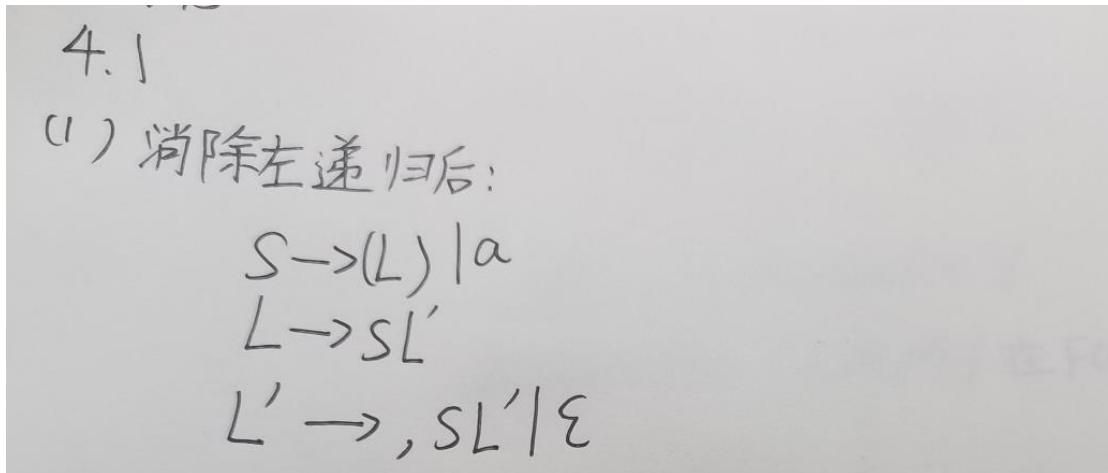 4.1
(1) 消除左递归后:
S→(L) | a
L→SL′
L′→, SL′ | ε